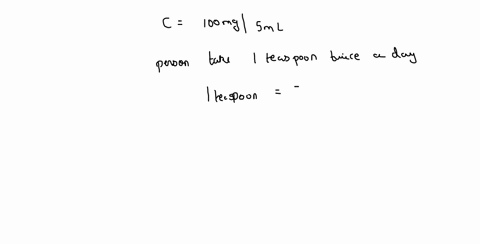 C = 100mg/5mL
person take 1 teaspoon twice a day
1 teaspoon =